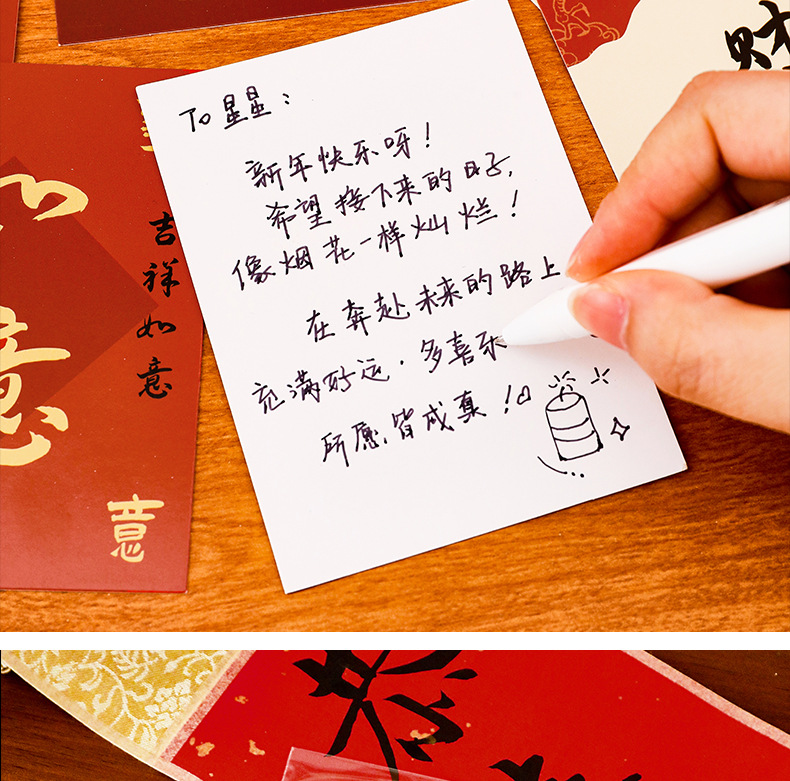 To 星星：
新年快乐呀！
希望接下来的日子，
像烟花一样灿烂！
在奔赴未来的路上
充满好运.多喜乐
所愿皆成真！
吉祥如意
意
意
财
恭